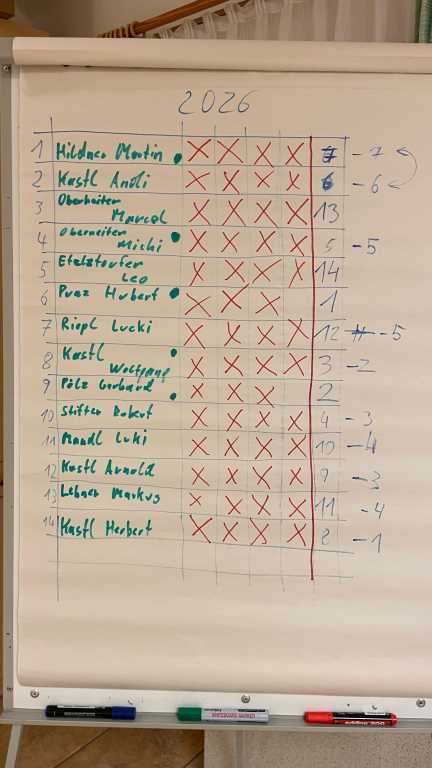 2026
1 Hildner Martin X X X X 7 - 7
2 Kastl Andi X X X X 6 - 6
3 Oberneiter
Marcel X X X X 13
4 Oberneiter
Michi X X X X 5 - 5
5
Leo X X X X 14
6 Hubert X X X 1
7 Riepl Lucki X X X X 12 - 5
8 Kastl
Wolfgang X X X X 3 - 2
9 Pölz Gerhard X X X 2
10 Stifter Robert X X X X 4 - 3
11 Mandl Luki X X X X 10 - 4
12 Kastl Arnold X X X X 9
13 Lehner Markus X X X X 11 - 4
14 Kastl Herbert X X X X 8 - 1